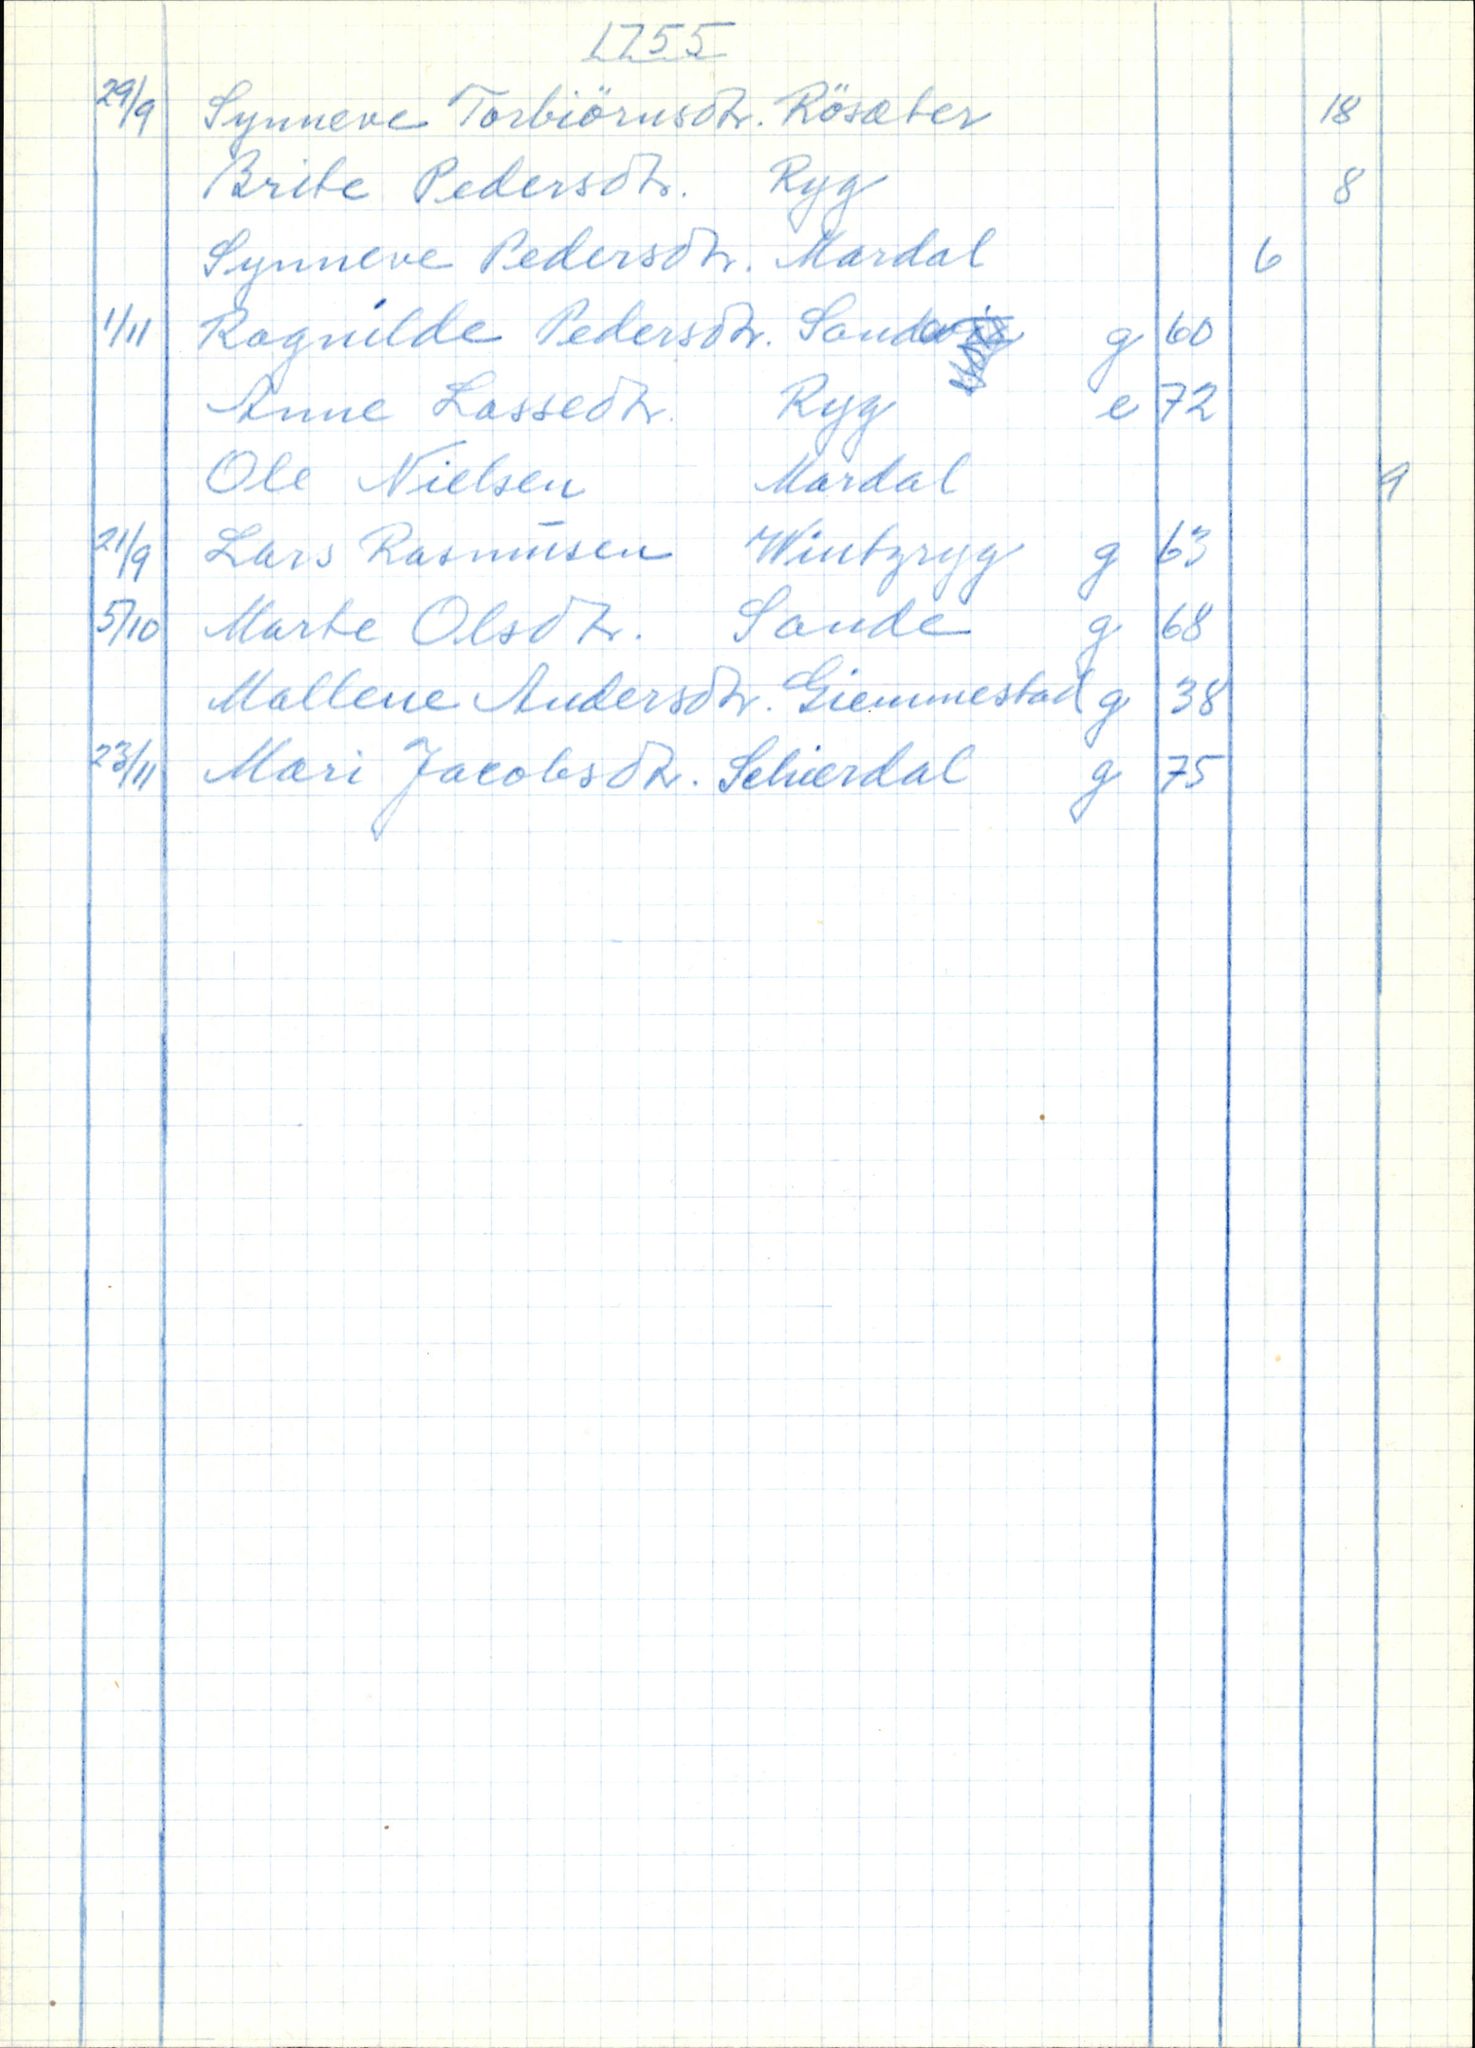 1755
29/9 Synneve Torbiörnsdtr. Rösæter 18
Brite Pedersdtr. Ryg 8
Synneve Pedersdtr. Mardal 6
1/11 Ragnilde Pedersdtr. Sandvig g 60
Anne Lassedtr. Ryg e 72
Ole Nielsen Mardal 9
21/9 Lars Rasmusen Wintzryg g 63
5/10 Marte Olsdtr. Sande g 68
Mallene Andersdtr. Giemmestad g 38
23/11 Mari Jacobsdtr. Schierdal g 75